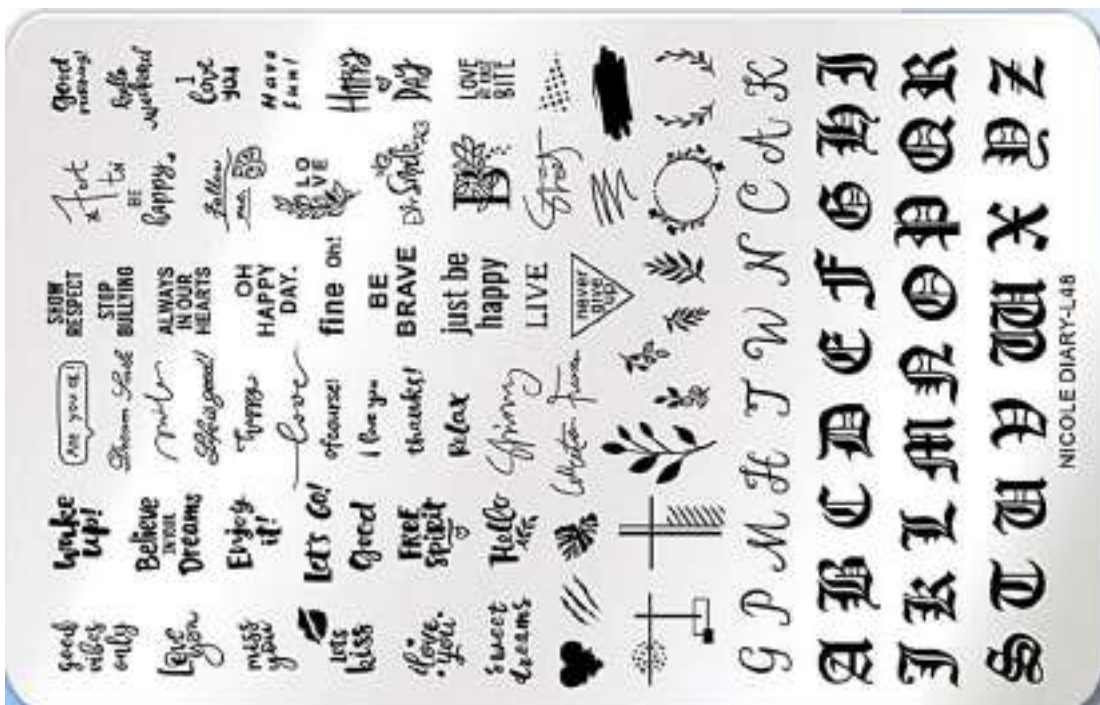 good
vibes
only
Love
you
miss
you
lets
kiss
i love
you
sweet
dreams
wake
up!
Believe
IN YOUR
Dreams
Enjoy
it!
Let's Go!
Good
FREE
spirit
Hello
Are you ok!
Life is good!
Happy
Love
of course!
I love you
thanks!
Relax
Spring
SHOW
RESPECT
STOP
BULLYING
ALWAYS
IN OUR
HEARTS
OH
HAPPY
DAY.
fine oh!
BE
BRAVE
just be
happy
LIVE
never
give
up
BE
happy.
Follow
me
LO
VE
Smile
B
good
morning!
hello
weekend
I
love
you
Have
fun!
Happy
DAY
LOVE
AT FIRST
BITE
G P M H T W N C A K
A B C D E F G H I
J K L M N O P Q R
S T U V W X Y Z
NICOLE DIARY-L48